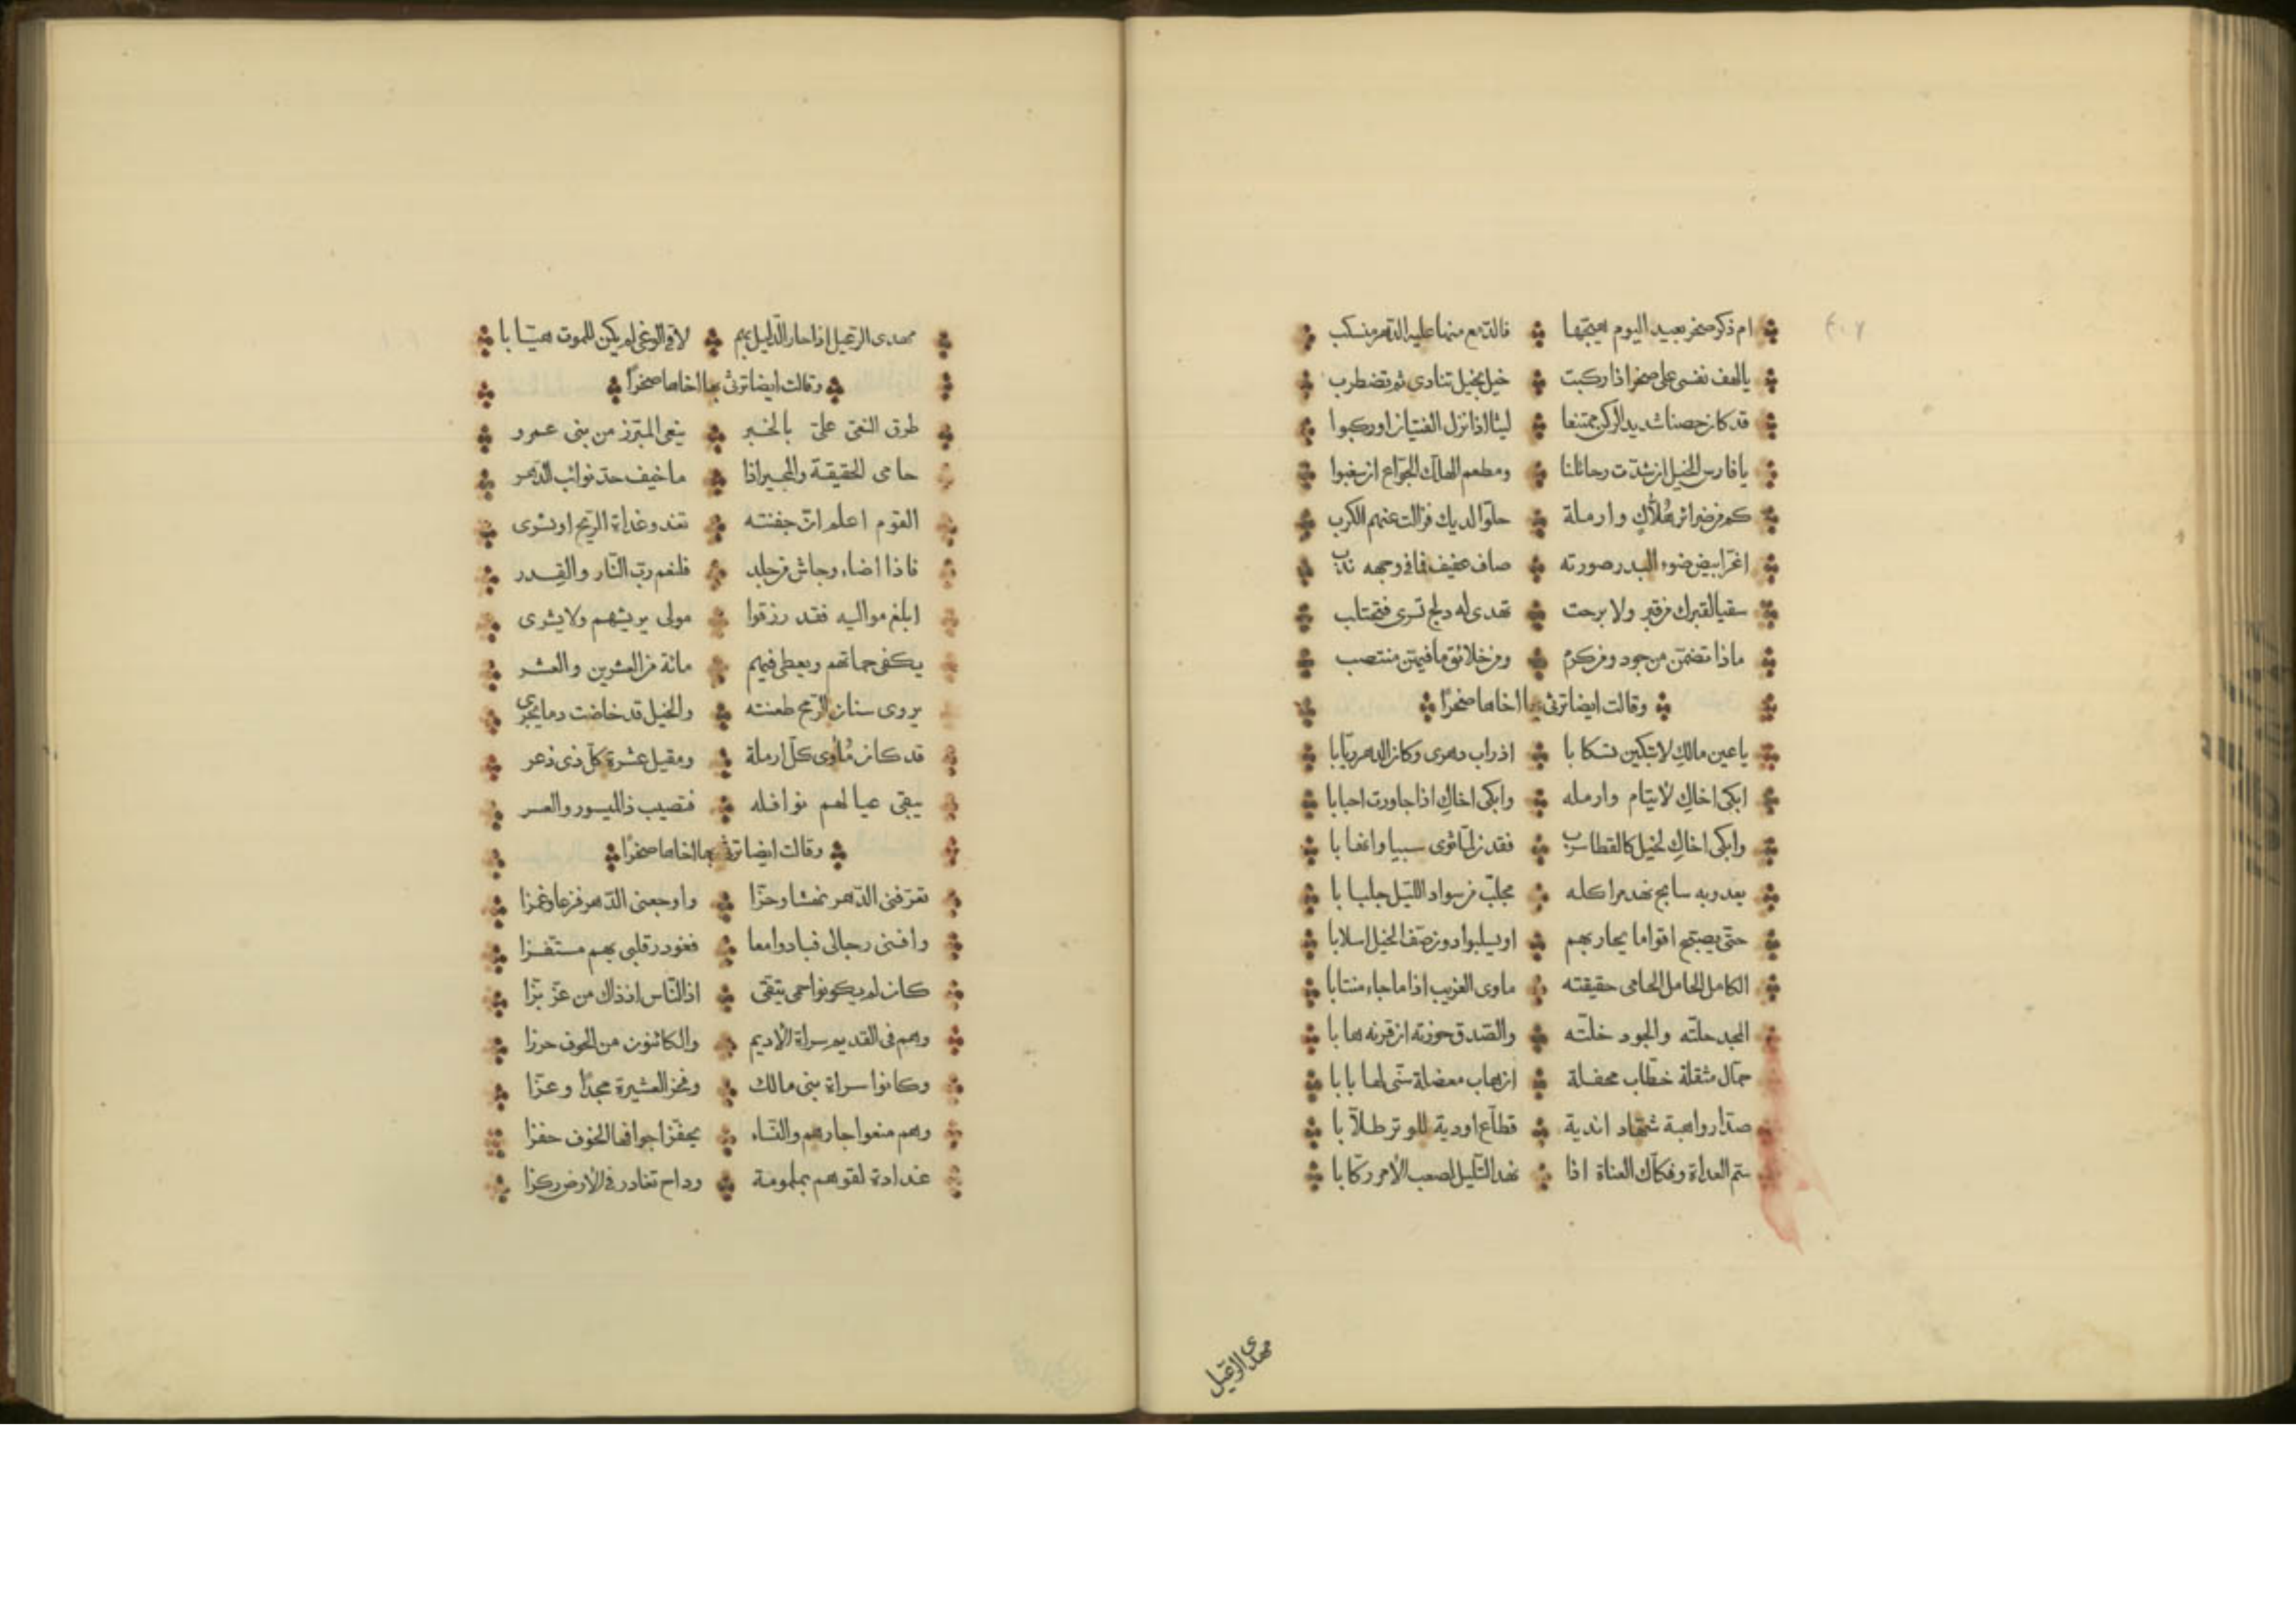 ام ذكر صخر بعيد اليوم هيجها فالدمع منها عليه الدهر منسكب
يالهف نفسى على صخر اذا ركبت خيل بخيل تنادى ثم تضطرب
قد كان حصنا شديد الركن ممتنعا ليثا اذا نزل الفتيان اوركبوا
يا فارس الخيل ان شدت رحائلنا ومطعم الهلاك الجواع ان سغبوا
كم من ضرائر هُلّاكٍ وارملة حلوا لديك فزالت عنهم الكرب
اغر ابيض ضوء البدر صورته صاف عفيف فما فى وجهه ندب
سقيا لقبرك من قبر ولا برحت تهدى له دلج تسرى فتحتلب
ماذا تضمن من جود ومن كرم ومن خلائق ما فيهن منتصب
وقالت ايضا ترثى بها اخاها صخرًا
يا عين مالكِ لا تبكين تسكابا اذ راب دهرى وكان الدهر ريّابا
ابكى اخاكِ لأيتام وارمله وابكى اخاكِ اذا جاورت احبابا
وابكى اخاكِ لخيل كالقطا سرب فقدن لمّا ثوى سبيا وانهابا
يعدو به سابح نهد مراكله مجلبب من سواد الليل جلبابا
حتى يصبح اقواما يحاربهم او يسلبوا دون صف الخيل اسلابا
الكامل الحامل الحامى حقيقته ماوى الغريب اذا ما جاء منتابا
المجد حلّته والجود خلّته والصدق حوزته ان قرنه هابا
حمّال مثقلة خطّاب محفلة ان هاب معضلة سنّى لها بابا
واهبة شهّاد اندية قطّاع اودية للوتر طلّابا
سم العداة وفكّاك العناة اذا نهد التليل لصعب الأمر ركّابا
مهدى الرعيل
مهدى الرعيل اذا حار الدليل بهم لاقى الوغى لم يكن للموت هيّابا
وقالت ايضا ترثى بها اخاها صخرًا
طرق النعى علىّ بالخبر ينعى المبرّز من بنى عمرو
حامى الحقيقة والمجير اذا ما خيف حدّ نوائب الدهر
القوم اعلم انّ جفنته تغدو غداة الريح او تسرى
فاذا اضاء وجاش مرجله فلنعم ربّ النّار والقدر
ابلغ مواليه فقد رزقوا مولى يريشهم ولا يشرى
يكفى حماتهم ويعطى فيهم مائة من العشرين والعشر
يروى سنان الرمح طعنته والخيل قد خاضت دما يجرى
قد كان مأوى كلّ ارملة ومقيل عشرة كلّ ذى ذعر
يبقى عيالهم نوافله فتصيب ذا الميسور والعسر
وقالت ايضا ترثى بها اخاها صخرًا
تعرّفنى الدّهر نهشا وحزّا واوجعنى الدّهر قرعا وغمزا
وافنى رجالى فبادوا معا فغودر قلبى بهم مستفزا
كان لم يكونوا حمى يتقى اذ النّاس اذ ذاك من عزّ بزّا
وهم فى القديم سراة الأديم والكائنون من الخوف حرزا
وكانوا سراة بنى مالك وفخر العشيرة مجدًا وعزّا
وهم منعوا جارهم والنساء يحفّز اجوافها الخوف حفزا
غداة لقوهم بملمومة رداح تغادر فى الأرض ركزا